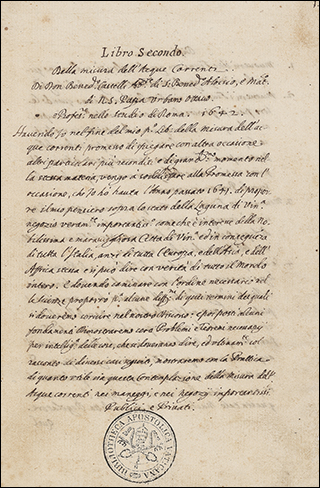 Libro Secondo.
Della misura dell'Acque Correnti
Di Don Bened. Castelli Ab.e di S. Bened. Aloisio, e Mat.
di N.S. Papa Urbano Ottavo.
e Profes. nello studio di Roma. 1642.
Havendo Io nel fine del mio p.o lib. della misura dell'ac
que correnti promesso di spiegare con altra occasione
altri particolari più reconditi, e di grand.mo momento nel
la stessa materia, vengo à sodisfare alla promessa con l'
occasione, che Io hò hauta l'Anno passato 1641. di propor
re il mio pensiero sopra lo stato della Laguna di Ven.a
negozio veram.te importantiss.o come che è interesse della No
bilissima e maravigliosa Città di Ven.a ed in conseguenza
di tutta l'Italia, anzi di tutta l'Europa, e dell'Asia, e dell'
Affrica stessa e si può dire con verità di tutto il Mondo
intero. e dovendo caminare con l'ordine necessario nel
le scienze proporrò p.a alcune diffin.ni di quei termini de quali
ci doveremo servire nel nostro discorso: e poi posti alcuni
fondamenti dimostreremo certi Problemi e Teoremi necessarij
per intellig.a delle cose, che doveremo dire, ed
racconto di diversi casi seguiti, mostreremo con la Prattica
di quanto utile sia questa Contemplazione della misura dell'
Acque correnti ne i maneggi e nei negozij importantissi.
Publici, e Privati.
BIBLIOTHECA APOSTOLICA VATICANA